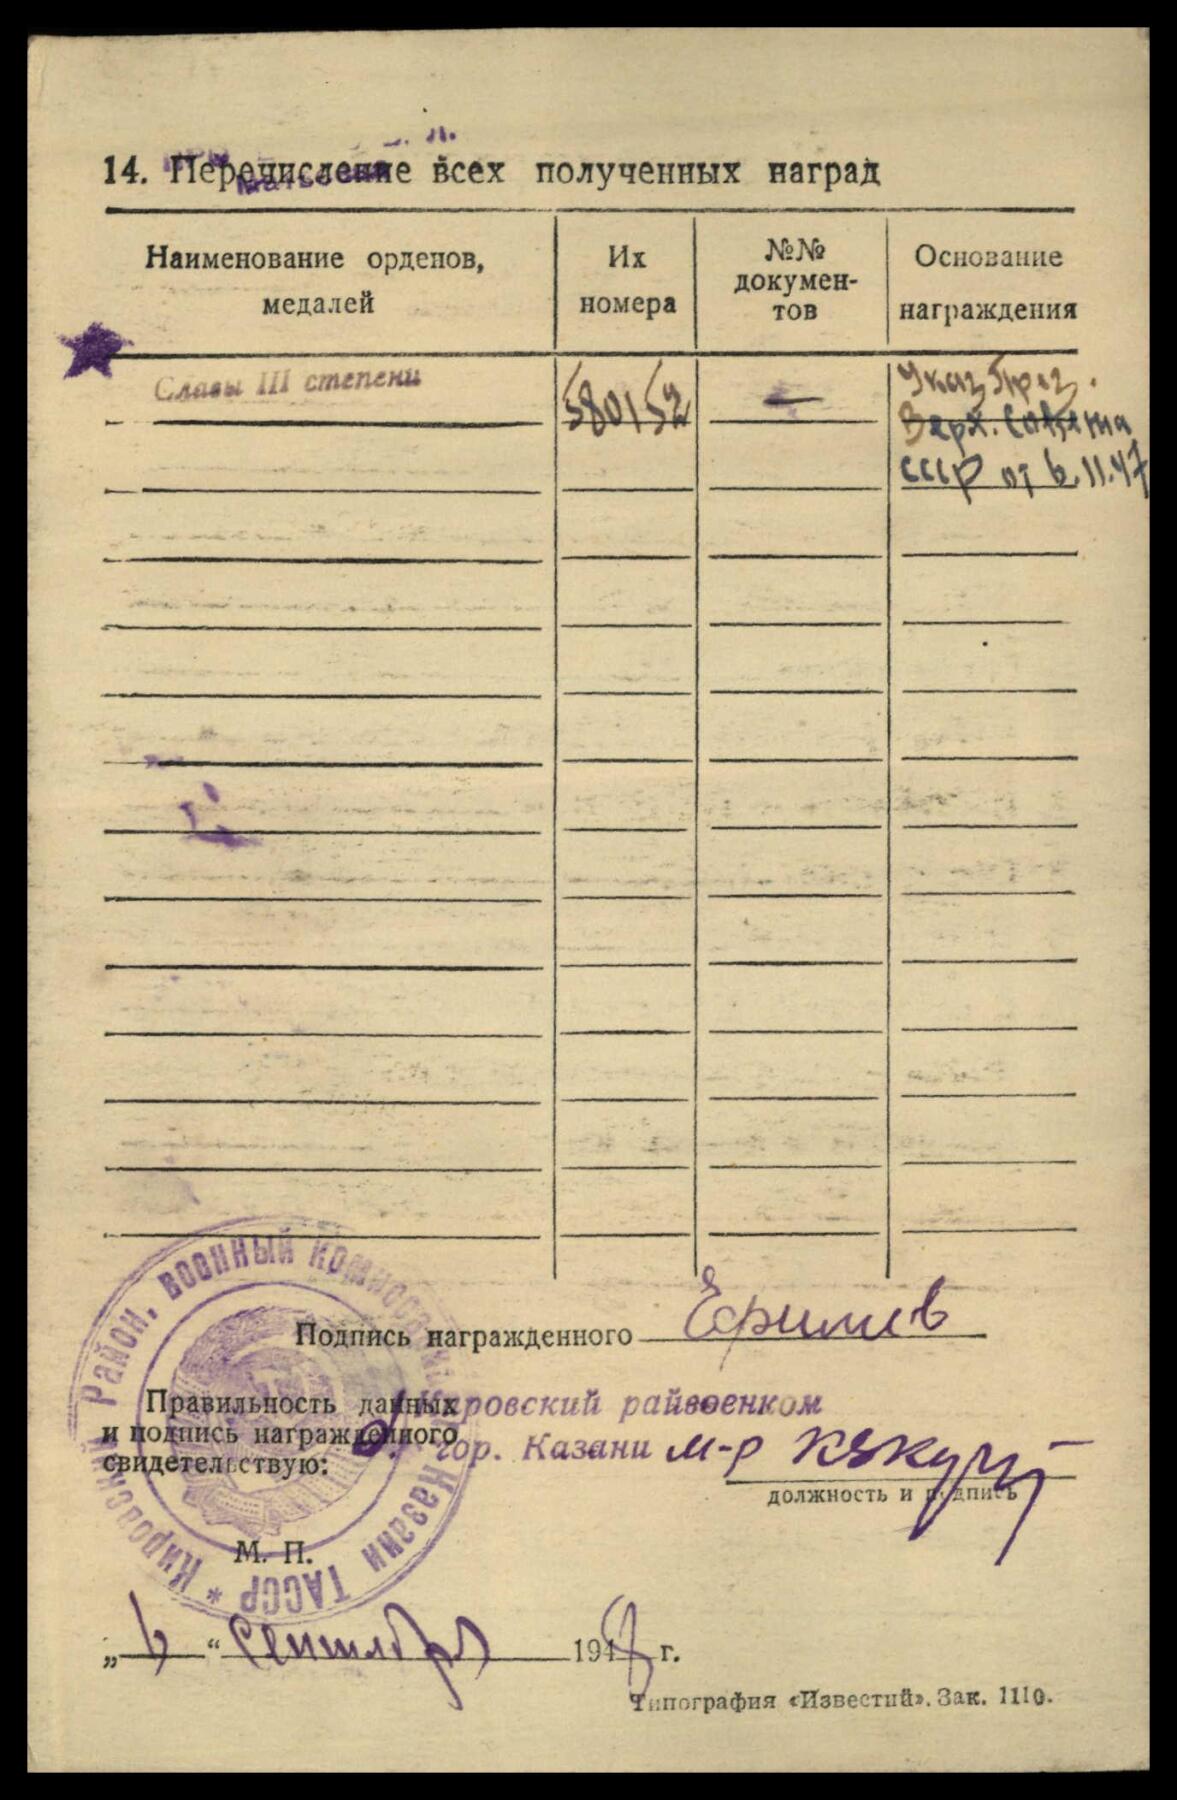 14. Перечисление всех полученных наград
Наименование орденов,
медалей
Их
номера
№№
докумен-
тов
Основание
награждения
Славы III степени
580152
—
Указ През.
Верх. Совета
СССР от 6.11.47
Подпись награжденного
Правильность данных
и подпись награжденного
свидетельствую:
Кировский райвоенком
гор. Казани м-р
должность и подпись
Кировский Район. военный комиссариат Казани ТАССР *
М. П.
„6“ Сентября 1948 г.
Типография «Известий». Зак. 1110.